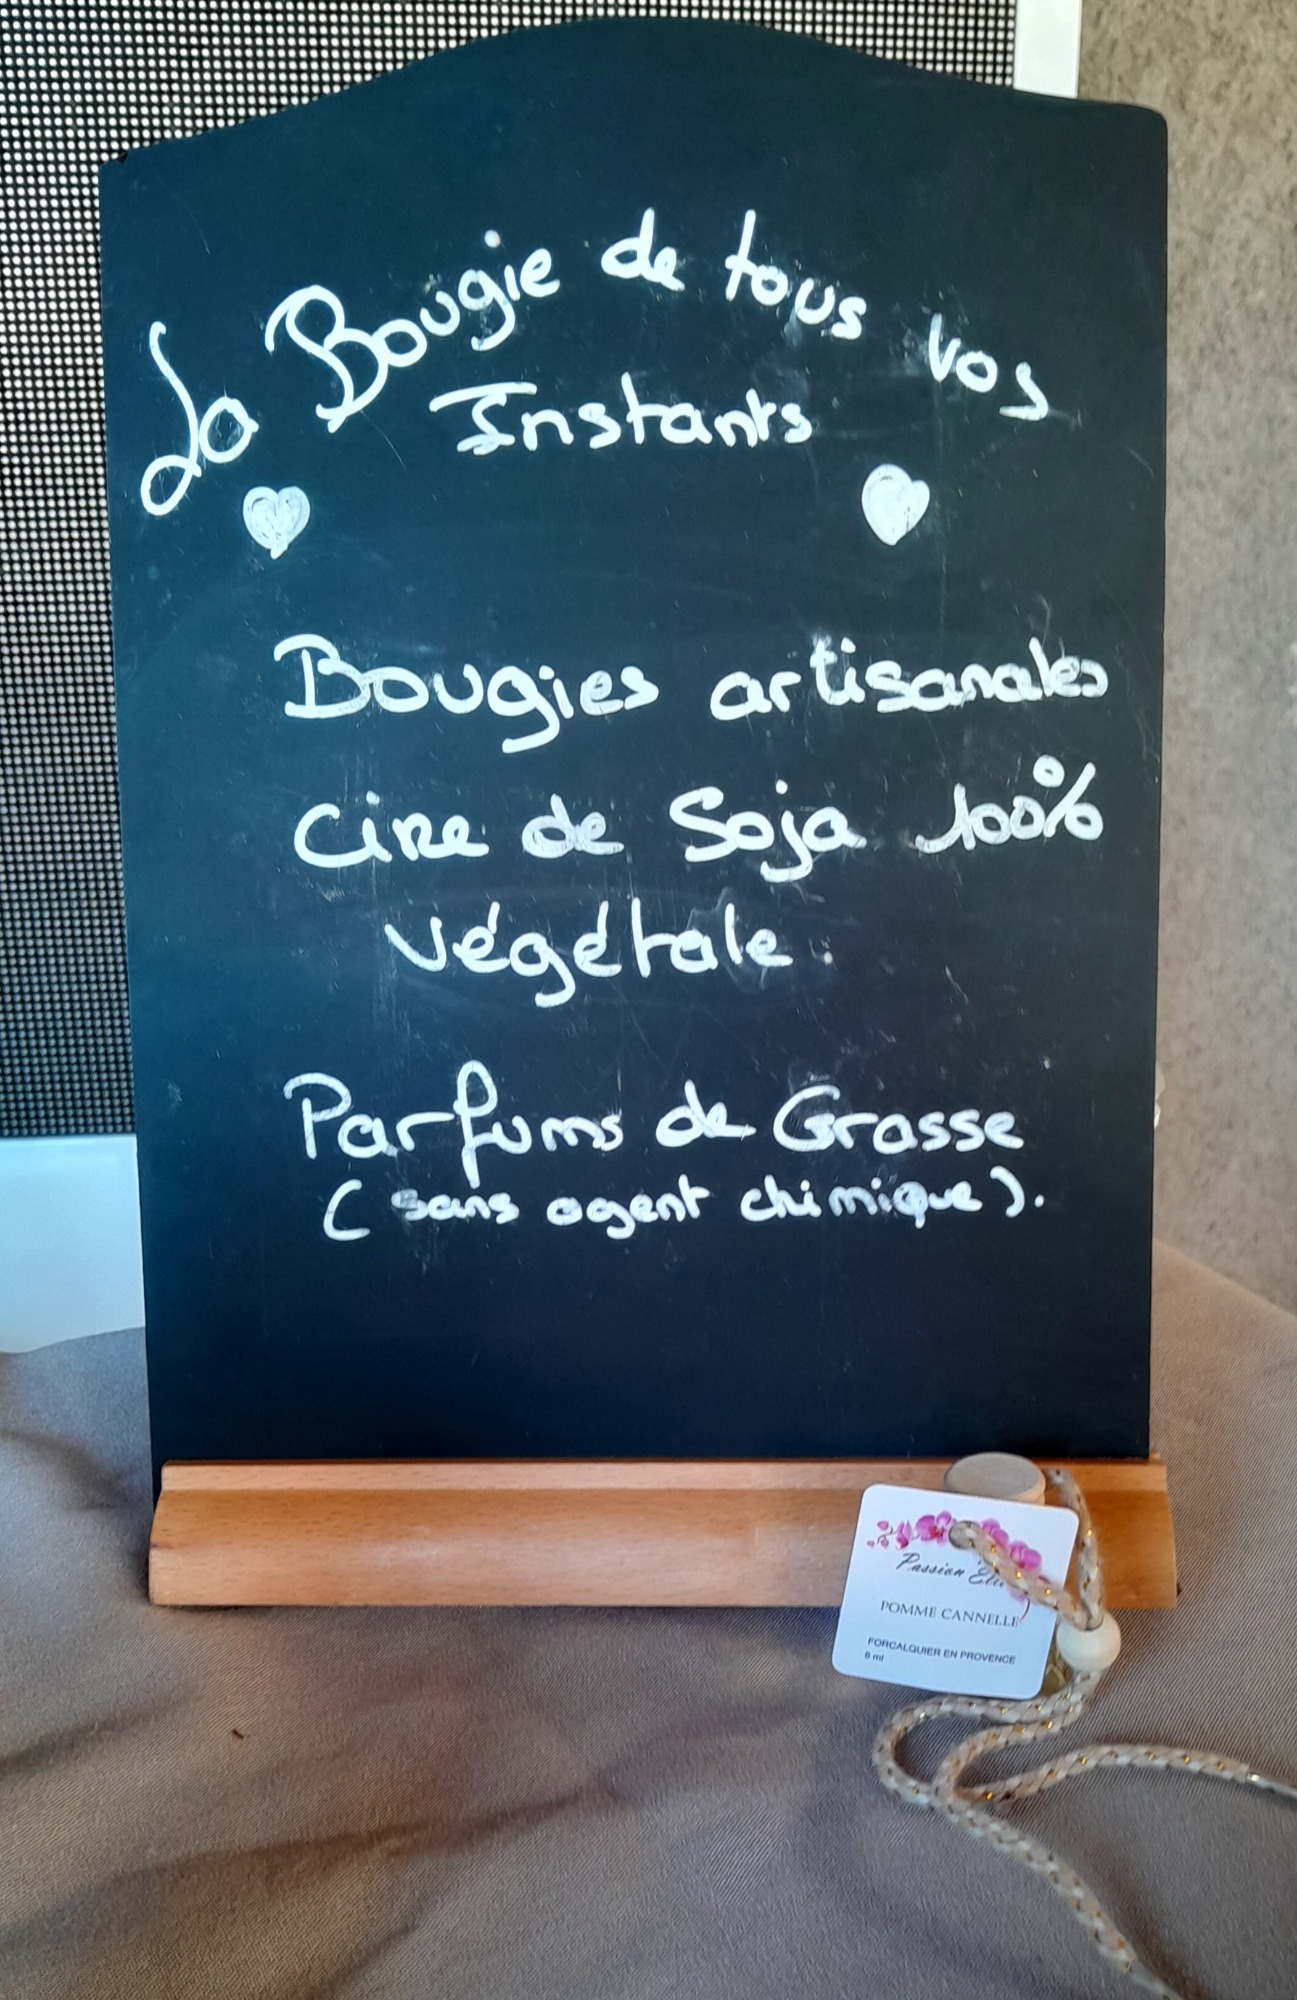 La Bougie de tous vos
Instants
Bougies artisanales
Cire de Soja 100%
végétale.
Parfums de Grasse
(sans agent chimique).
Passion
POMME CANNELLE
FORCALQUIER EN PROVENCE
8 ml